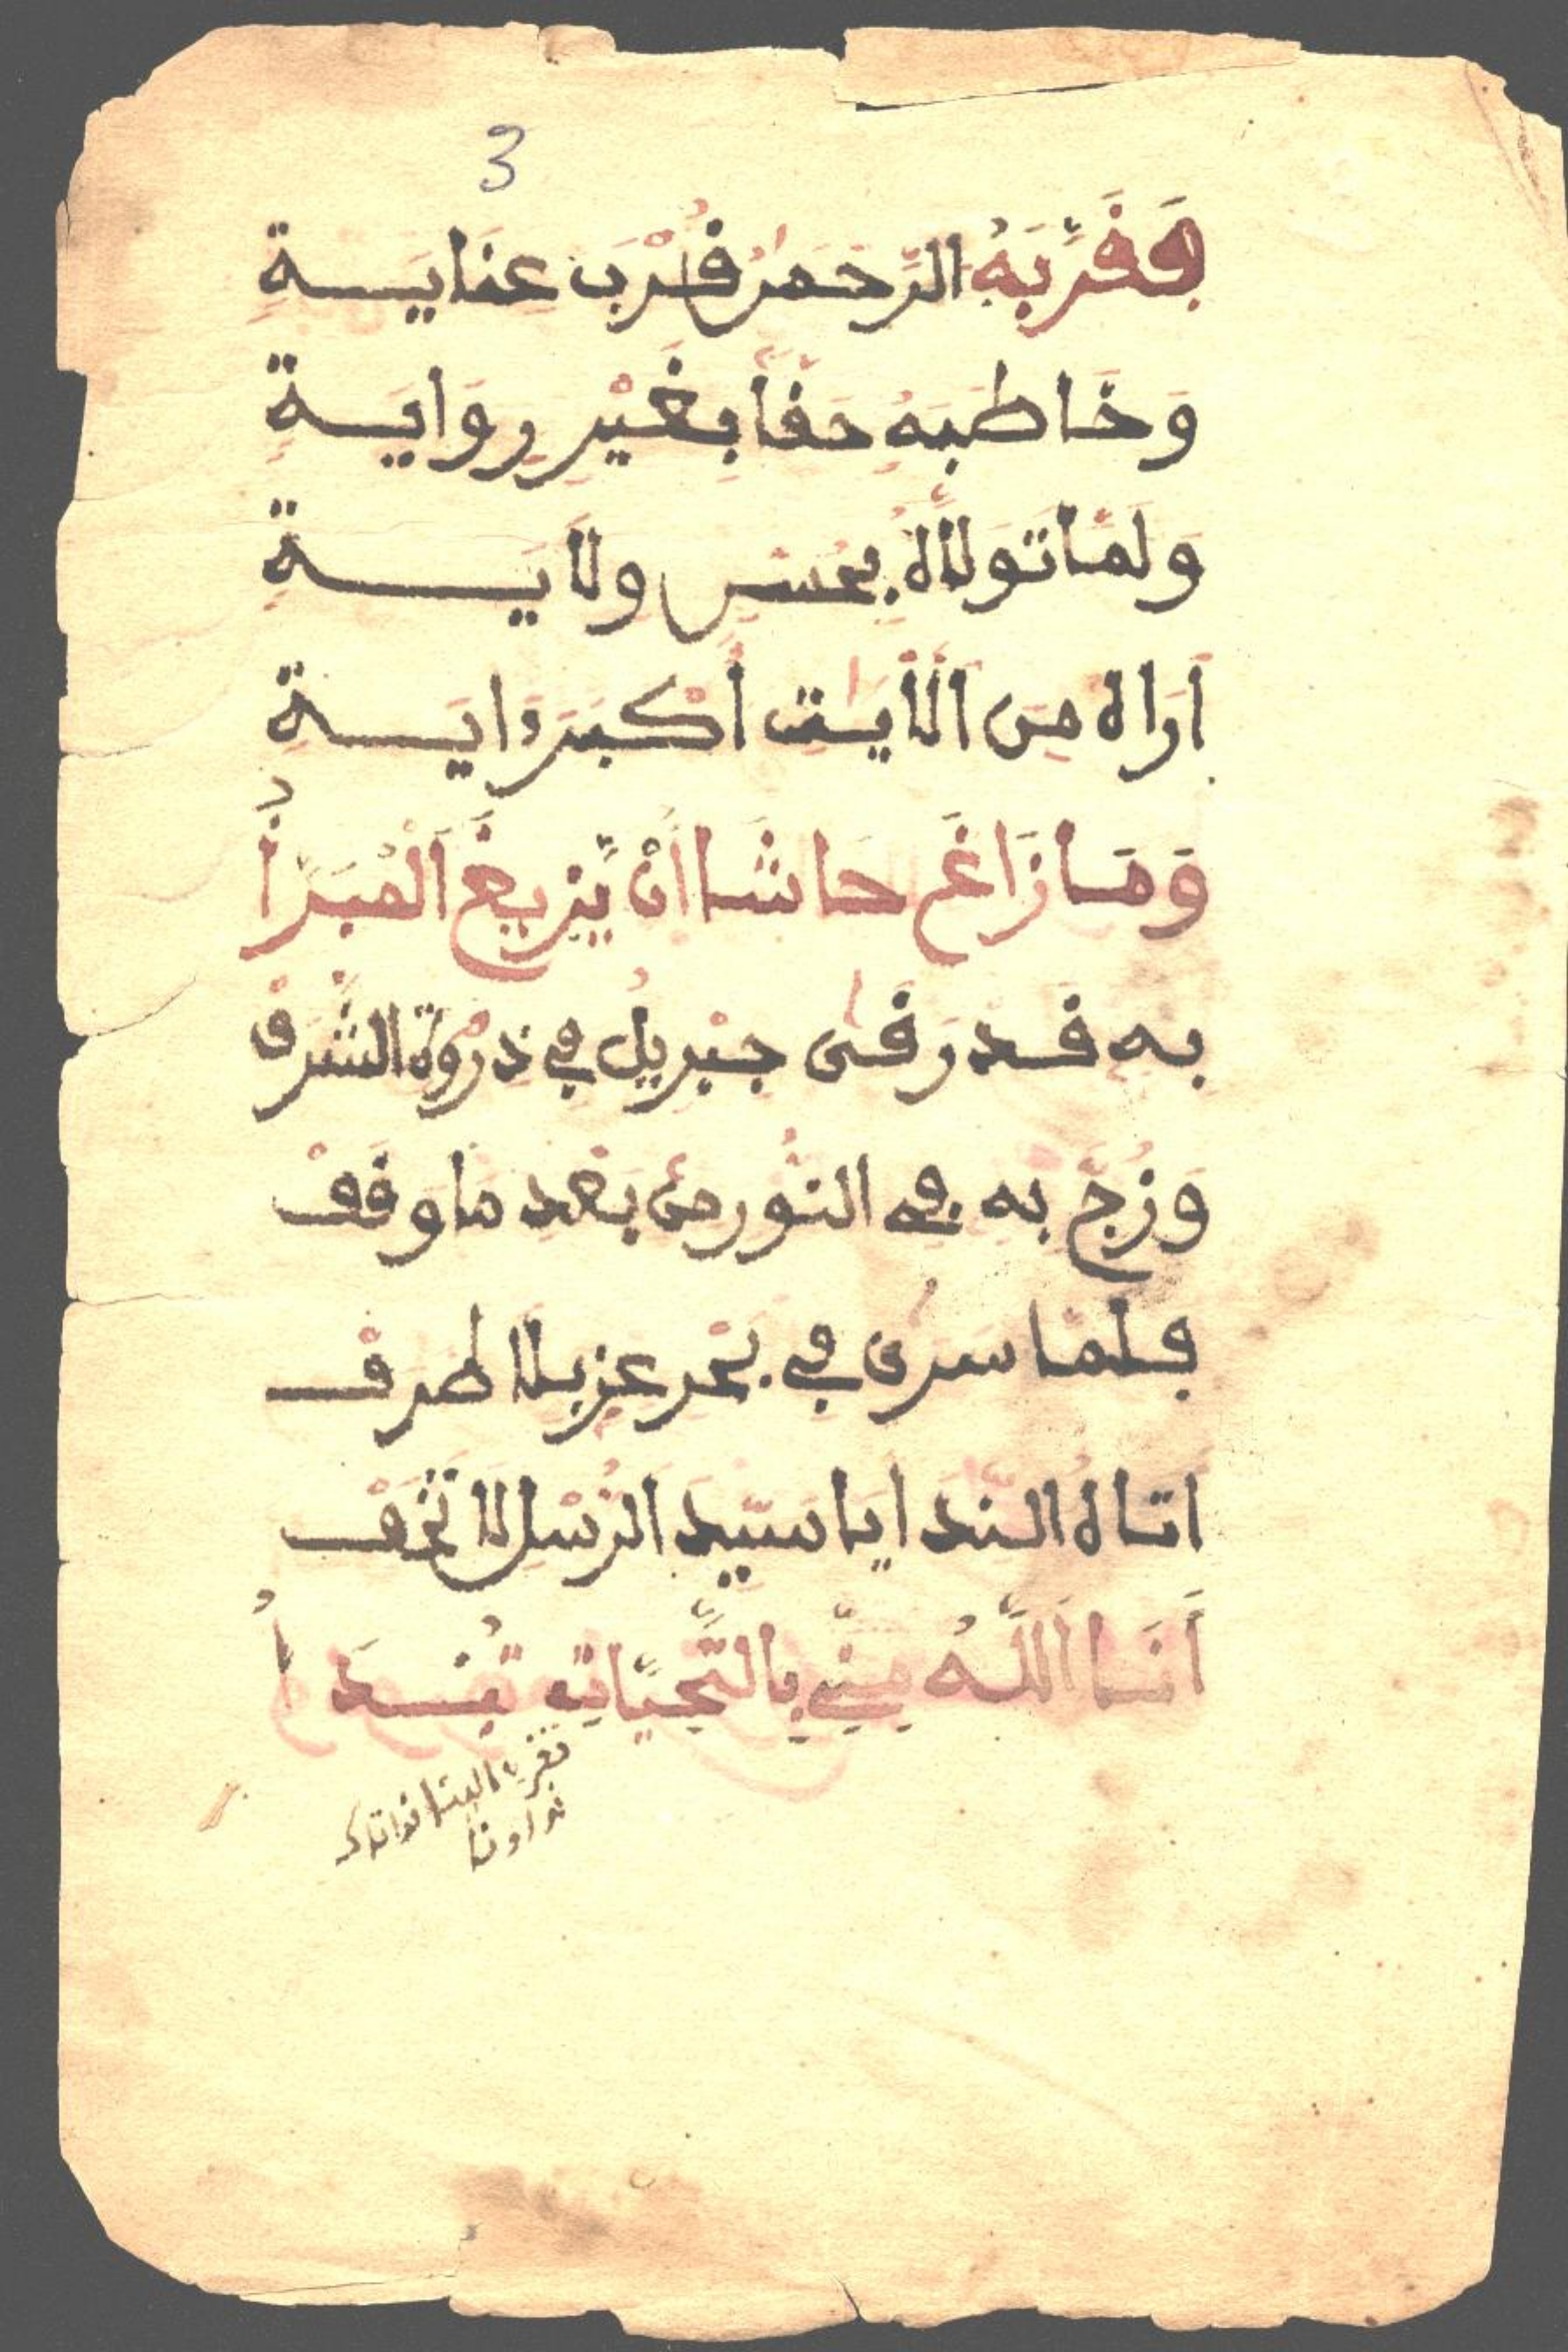 3
فَقَرَّبَهُ الرَّحْمَنُ قُرْبَ عِنَايَةِ
وَخَاطَبَهُ حَقًّا بِغَيْرِ رِوَايَةِ
وَلَمَّا تَوَلَّاهُ بِحُسْنِ وِلَايَةِ
اَرَاهُ مِنَ الْأَيَتِ أَكْبَرَ ءَايَةِ
وَمَا زَاغَ حَاشَا أَنْ يَّزِيغَ الْمُبَرَّأُ
بِهِ قَدْ رَقَى جِبْرِيلُ فِي ذِرْوَةِ الشَّرَفْ
وَزُجَّ بِهِ فِي النُّورِ مِنْ بَعْدِ مَا وَقَفْ
فَلَمَّا سَرَى فِي بَحْرِ عِزٍّ بِلَا طَرَفْ
اَتَاهُ النِّدَا يَا سَيِّدَ الرُّسْلِ لَا تَخَفْ
أَنَا اللَّهُ مِنِّي بِالتَّحِيَّاتِ تُبْدَأُ